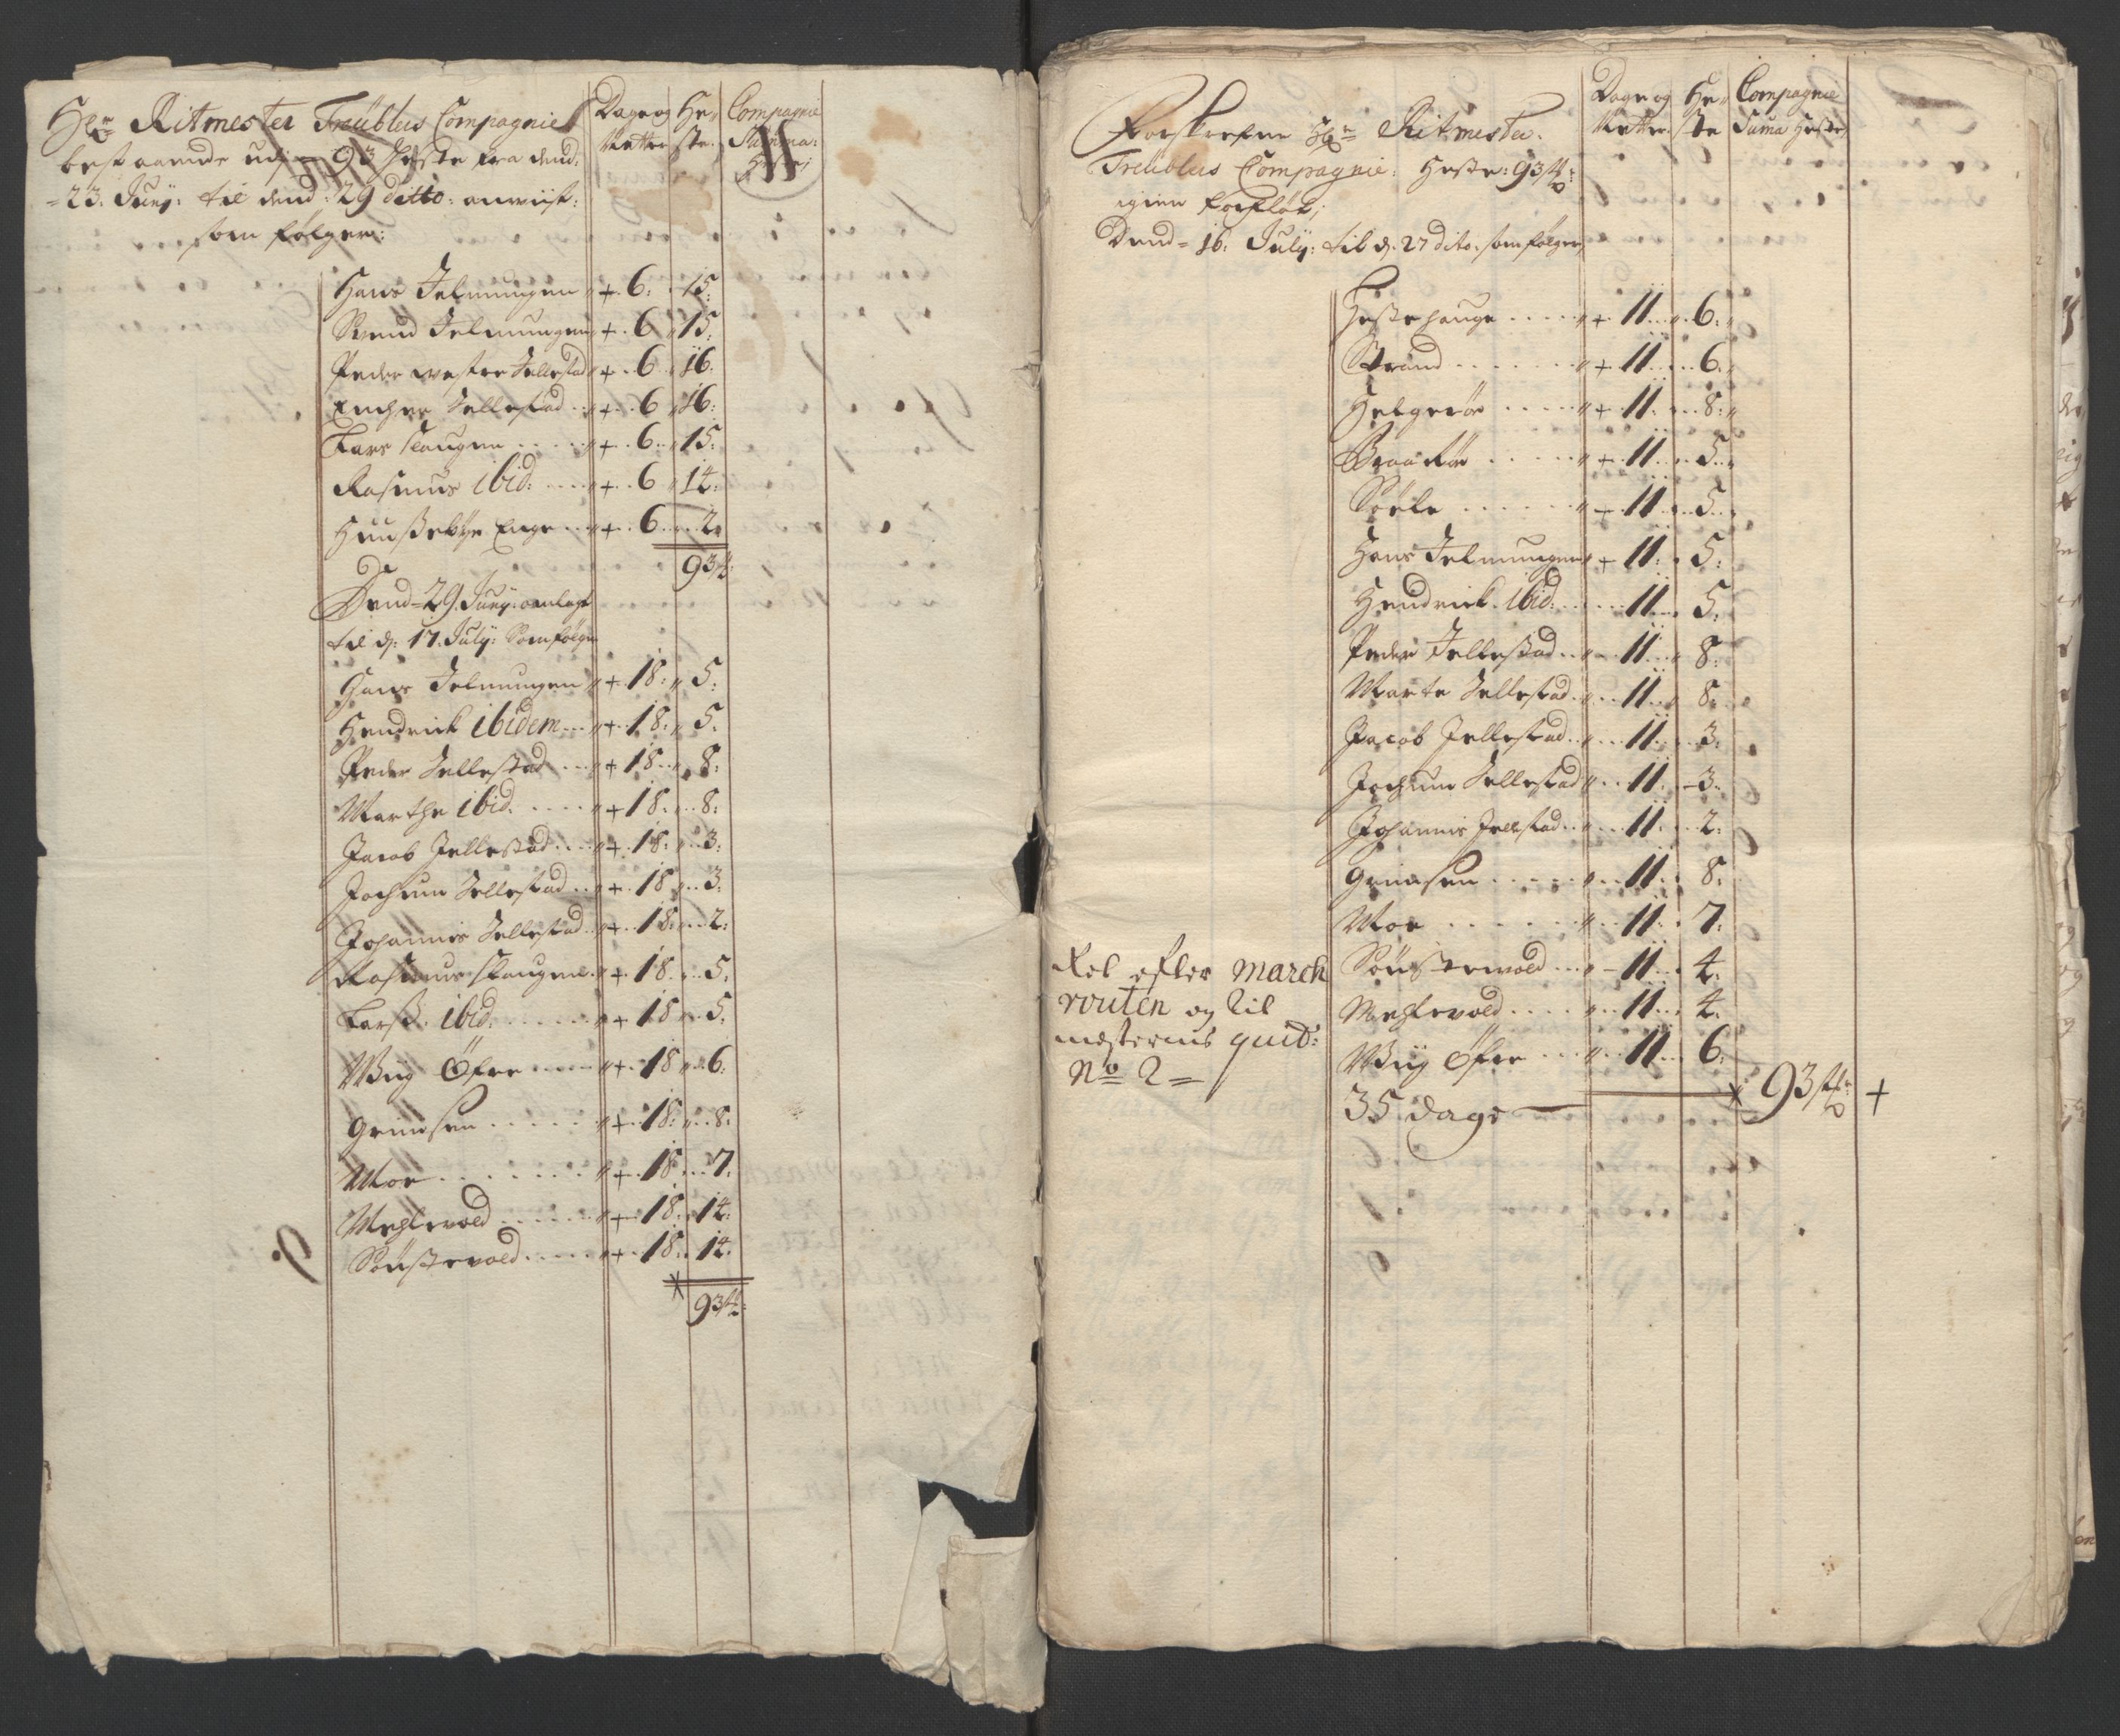 Hr. Ritmester Treüblers Compagnie
bestaaende udj = 93 Heste fra dend:
= 23. Junij: til dend: 29 ditto: anviist:
som følger:
Dage og Netter
He- ste.
Compagnie Summa: Heste;
Hans Jelmungen " + .. 6: .. 15:
Svend Jelmungen " + .. 6 " 15:
Peder westre Jellestad " + .. 6 .. " 16.
Jellestad .. " + .. 6 " 16:
Lars Haugen ..... " + .. 6 .. " 15:
Rasmus ibid: ..... " + .. 6 " 14:
Huusebye Enge ... " + .. 6 .... 2.
93 st:
Dend = 29. Junij: anlagt
til d: 17. Julij: Som følger
Hans Jelmungen " + .. 18: " 5:
Hendrick ibidem ... " + .. 18: " 5.
Peder Jellestad .... " + 18 .. " 8:
Marthe ibid. ..... " + 18: " .. 8:
Jacob Jellestad .... " + 18: " .. 3:
Jochum Jellestad ... " + .. 18 " .. 3:
Johannis Jellestad .. " + .. 18: " ... 2:
Rasmus Haugen .. " + .. 18 . " .. 5.
Larss. ibid. ...... " + .. 18 " .. 5.
Wiig Øfre ..... " + .. 18 " .. 6:
Grimsen ...... " + .. 18: " .. 8:
Moe ....... " + .. 18 .... 7.
Mehlevold ...... " + .. 18 .. 14:
Sønstevold ..... " + .. 18: . 14:
93 st:
Forskrefne Hr. Ritmester.
Treüblers Compagnie: Heste: 93 st:
igien forfløt;
Dend = 16: Julij: til d: 27 dito: som følger
Dage og Netter
He- ste
Compagnie Suma Heste
Hestehauge ..... " + .. 11 .... 6: "
Strand ....... " + .. 11 .... 6: "
Helgerøe ..... " + .. 11 .... 8: "
Braarøe ..... " + .. 11 .... 5 .. "
Søele ...... " + .. 11 .... 5 ...
Hans Jelmungen " + .. 11: .. 5:
Hendrick. ibid: ...... 11 ... 5:
Peder Jellestad .. " .. 11 .... 8:
Marte Jellestad . " .. 11 ... 8:
Jacob Jellestad .. " .. 11 .... 3:
Jochum Jellestad " .. 11. - 3.
Johannis Jellestad .. " .. 11 .... 2:
Grimsen ..... " .. 11 ... 8:
Moe ..... " .. 11 .. 7.
Sønstevold ... " - 11 ... 4.
Mehlevold .... " .. 11 .. 4.
Wiig Øfre ... " .. 11 ... 6:
35 dage — 93 st: +
Ret efter march
routen og til
mesterens quit:
No 2 =